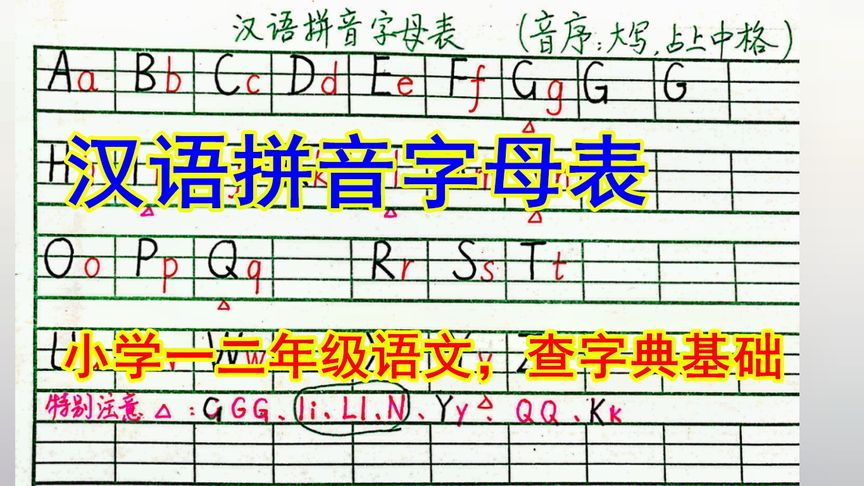 汉语拼音字母表 (音序:大写,占上中格)
Aa Bb Cc Dd Ee Ff Gg G G
△
H
汉语拼音字母表
△ △ △
Oo Pp Qq Rr Ss Tt
△
小学一二年级语文，查字典基础
特别注意△:G G G、Ii、Ll、N、Yy△:QQ、Kk